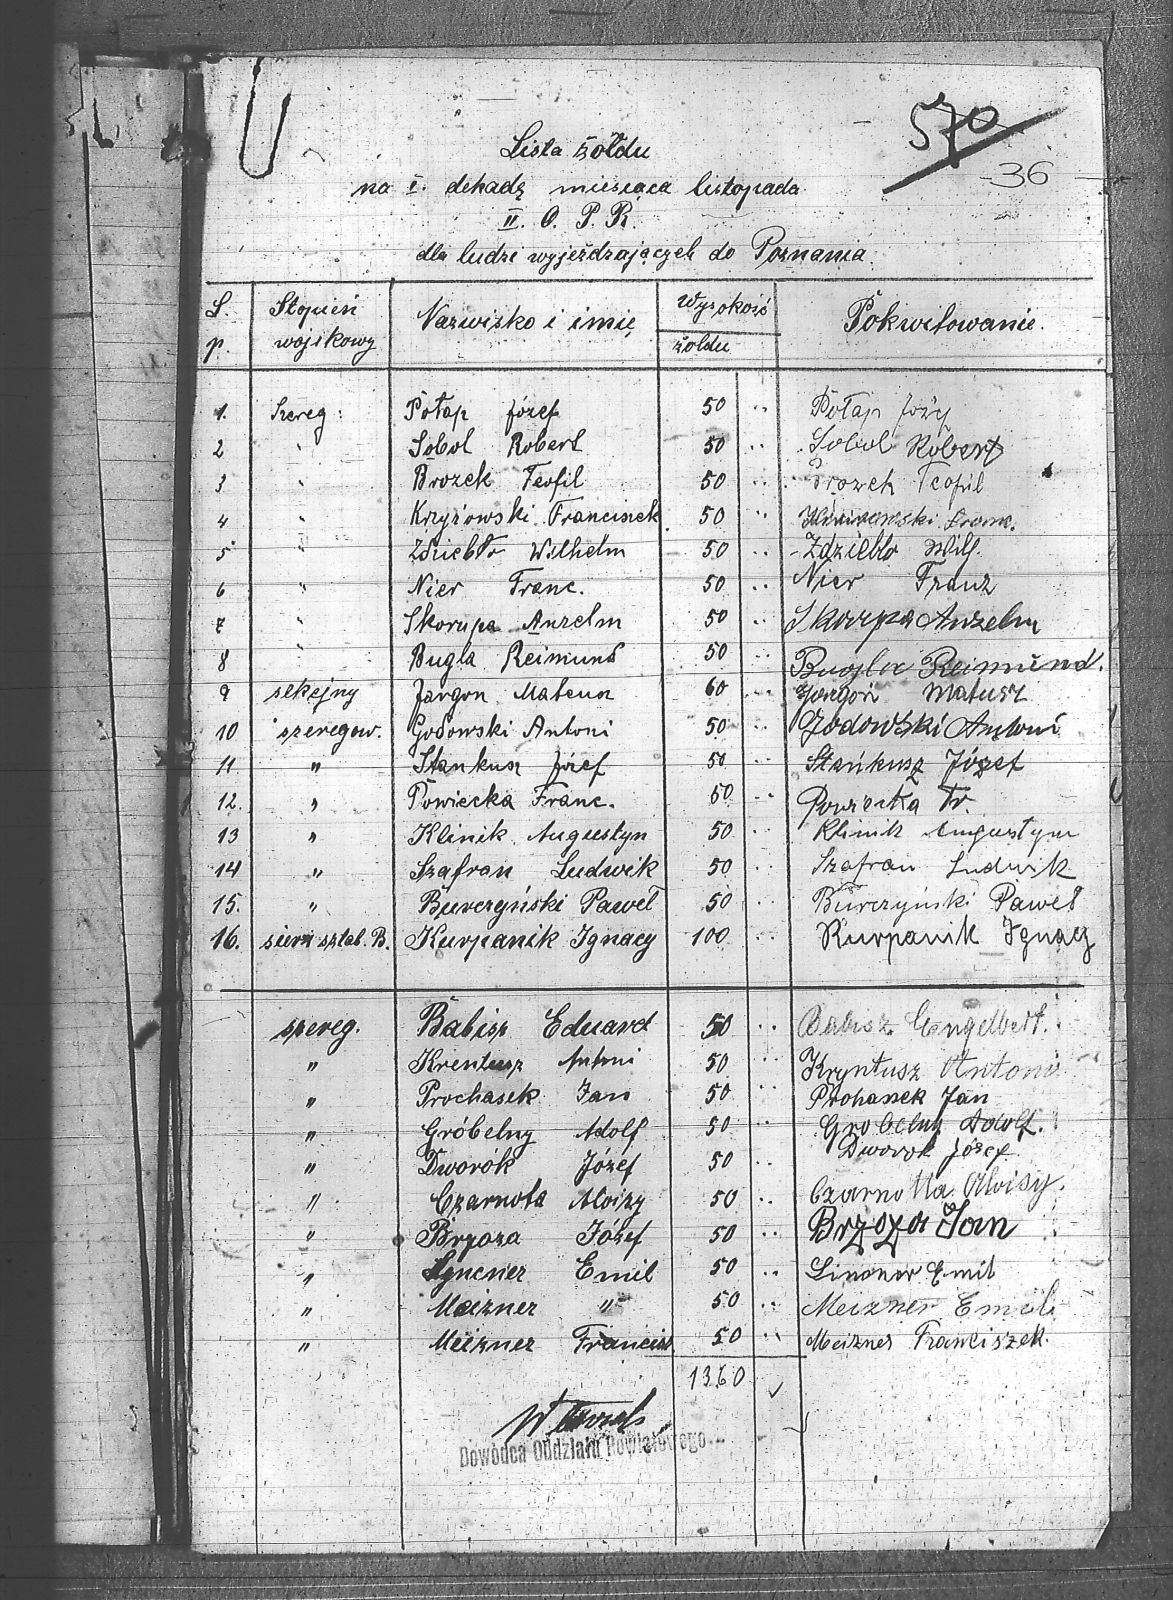 570
36
Lista żołdu
na I. dekadę miesiąca listopada
II. O. P. R.
dla ludzi wyjeżdzających do Poznania
L. p. Stopień wojskowy Nazwisko i imię Wysokość żołdu Pokwitowanie.
1. Szereg: Potap Józef 50 Potap Józef
2 " Sobol Robert 50 Sobol Robert
3 " Brozek Teofil 50 Brozek Teofil
4 " Krzyżowski Franciszek 50
5 " Wilhelm 50 Zdziebło Wilh.
6 " Nier Franc. 50 Nier Franz
7 " Skorupa Anzelm 50 Skorupa Anzelm
8 " Bugla Reimund 50 Bugla Reimund.
9 sekcjny Jargon Mateusz 60 Jargon Matusz
10 szeregow. Godowski Antoni 50 Godowski Antoni
11 " Stankusz Józef 50 Stankusz Józef
12. " Powiecka Franc. 50 Powiecka Fr.
13 " Klinik Augustyn 50 Klinik Augustyn
14 " Szafran Ludwik 50 Szafran Ludwik
15. " Burczyński Paweł 50 Burczyński Paweł
16. sierż sztab. B. Kurpanik Ignacy 100 Kurpanik Ignacy
szereg. Babisz Eduard 50 Babisz Engelbert.
" Krentusz Antoni 50 Kryntusz Antoni
" Prochasek Jan 50 Prohanek Jan
" Gróbelny Adolf 50 Grobelny Adolf.
" Dworók Józef 50 Dworok Józef
" Czarnota Aloizy 50 Czarnotta Aloisy.
" Brzoza Józef 50 Brzoza Jan
" Lyncner Emil 50 Lincner Emil
" Meizner " 50 Meizner Emil
" Meizner Francisz 50 Meizner Franciszek.
1360
Dowódca Oddziału Powiatowego